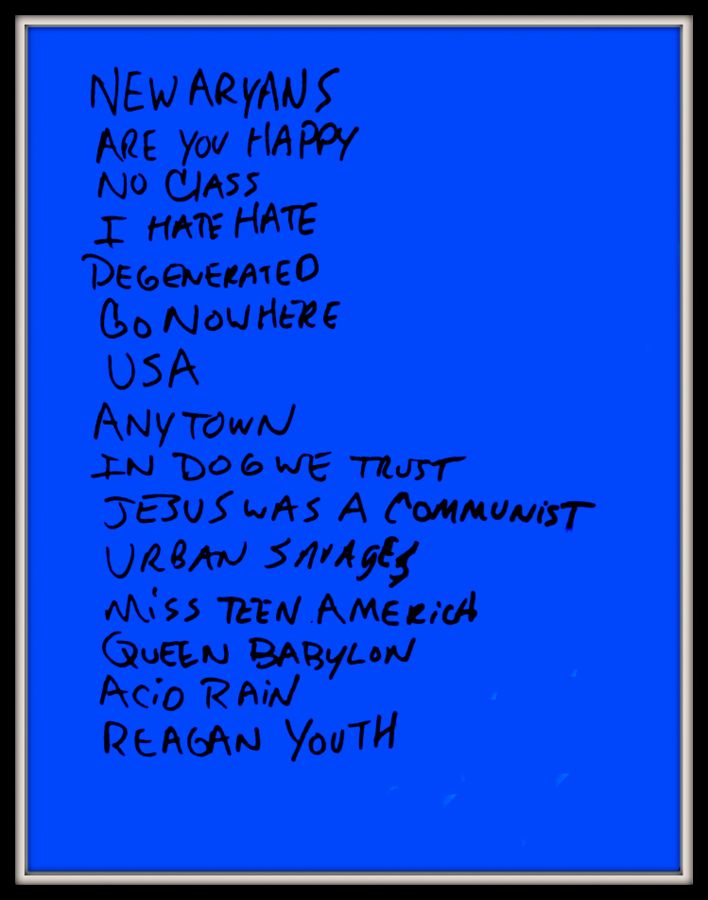 NEW ARYANS
ARE YOU HAPPY
NO CLASS
I HATE HATE
DEGENERATED
GO NOWHERE
USA
ANYTOWN
IN DOG WE TRUST
JESUS WAS A COMMUNIST
URBAN SAVAGES
MISS TEEN AMERICA
QUEEN BABYLON
ACID RAIN
REAGAN YOUTH